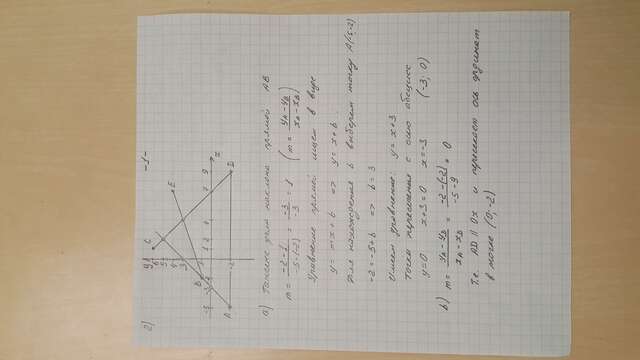 2)
-1-
a) Тангенс угла наклона прямой AB
m = (-2-1)/(-5-(-2)) = (-3)/(-3) = 1 (m = (yA-yB)/(xA-xB))
Уравнение прямой ищем в виде
y = mx + b => y = x + b
Для нахождения b выберем точку A(-5;-2)
-2 = -5 + b => b = 3
Имеем уравнение: y = x+3
Точка пересечения с осью абсцисс
y=0 x+3=0 x=-3 (-3; 0)
b) m = (yA-yD)/(xA-xD) = (-2-(-2))/(-5-9) = 0
Т.е. AD || Ox и пересекает ось ординат
в точке (0;-2)